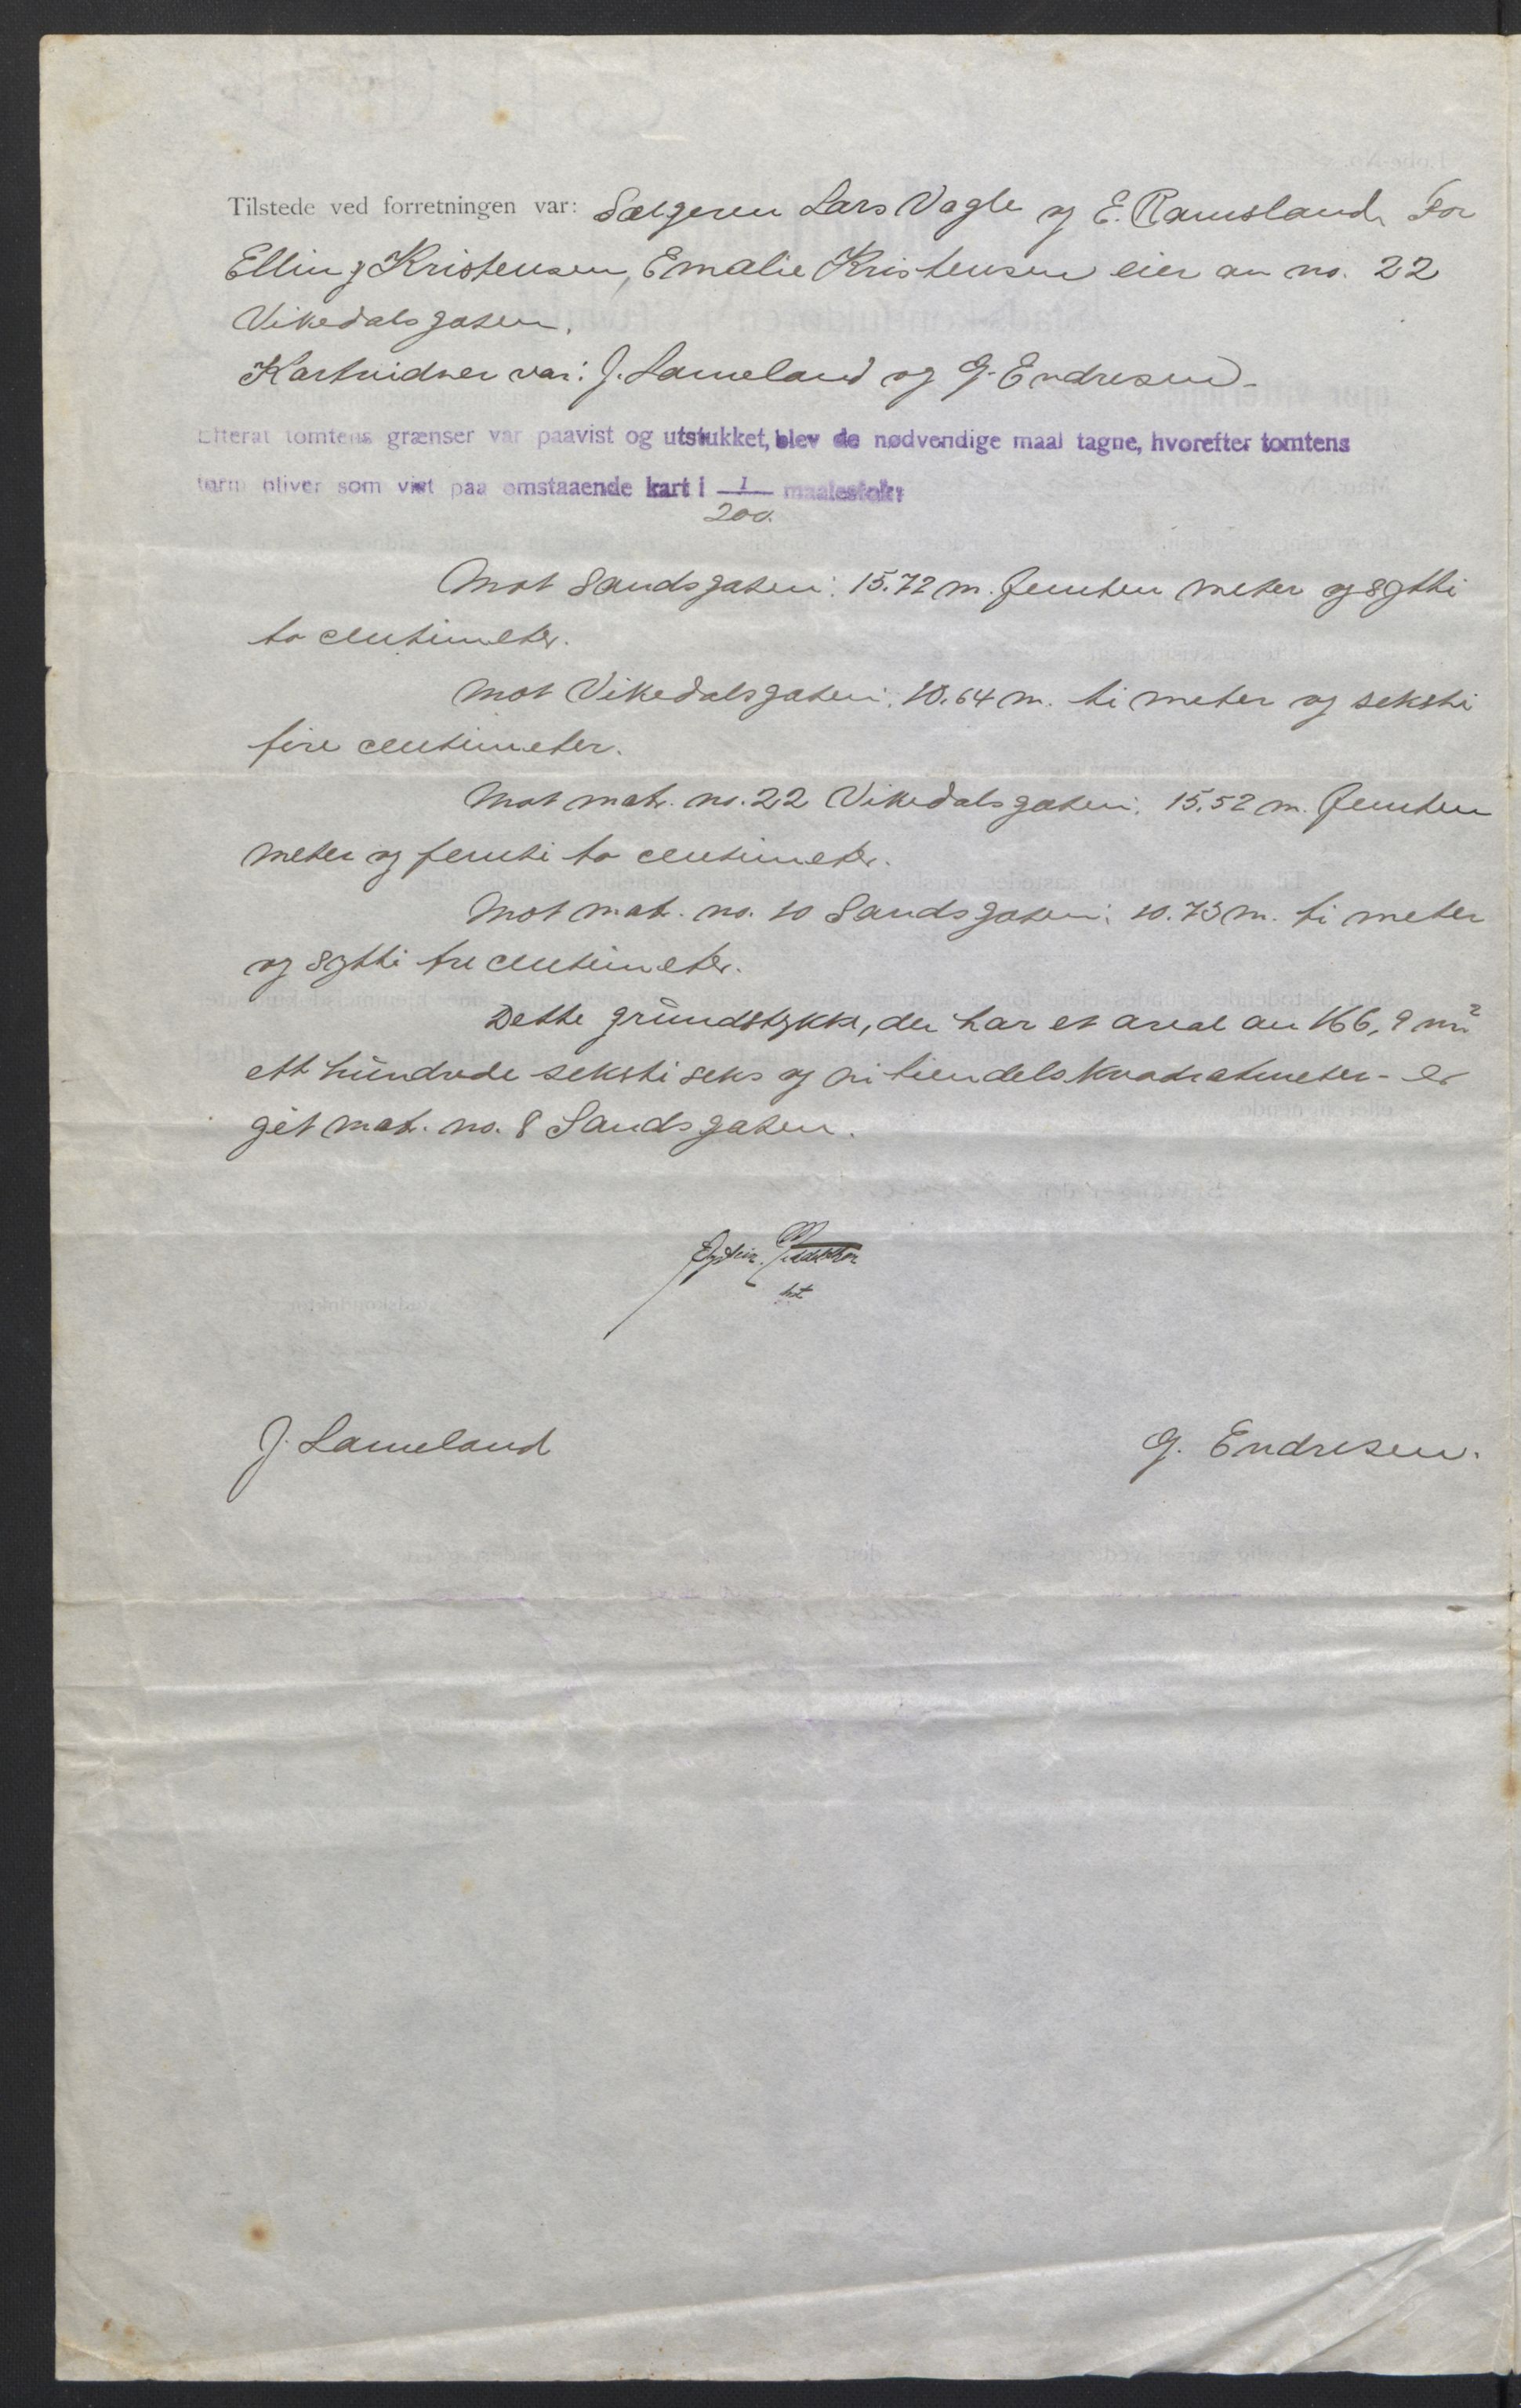 Tilstede ved forretningen var: Sælgeren Lars Vagle og E. Ramsland for
Elling Kristensen, Emalie Kristensen eier av no. 22
Vikedalsgaten.
Kartvidner var: J. Lameland og G. Endresen.
Efterat tomtens grænser var paavist og utstukket, blev de nødvendige maal tagne, hvorefter tomtens
form bliver som vist paa omstaaende kart i 1/200 maalestok:
Mot Sandsgaten: 15.72 m. femten meter og sytti
to centimeter.
Mot Vikedalsgaten: 10.64 m. ti meter og seksti
fire centimeter.
Mot matr. no. 22 Vikedalsgaten: 15.52 m. femten
meter og femti to centimeter.
Mot mat. no. 10 Sandsgaten: 10.73 m. ti meter
og sytti tre centimeter.
Dette grundstykke, der har et areal av 166,9 m²
ett hundrede seksti seks og ni tiendels kvadratmeter - er
git mat. no. 8 Sandsgaten.
J. Lameland
G. Endresen.